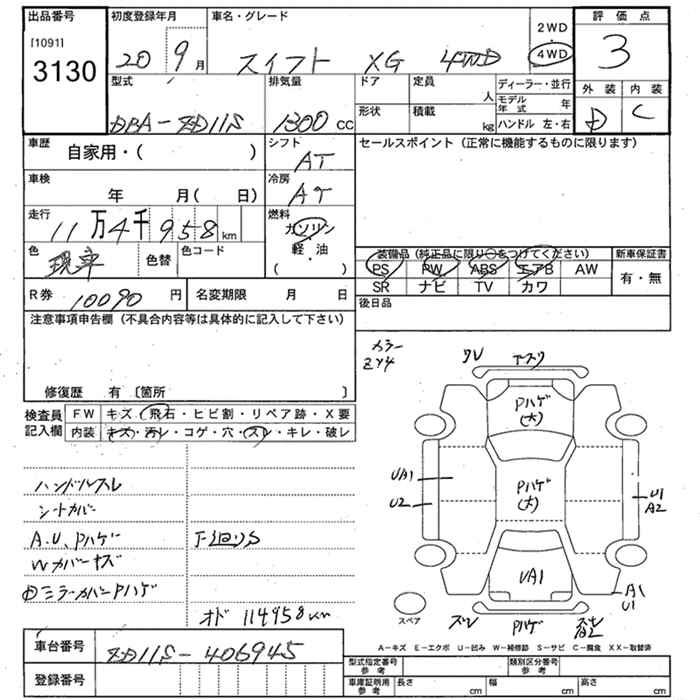 出品番号 初度登録年月 車名・グレード 2WD・4WD 評価点
[1091]
3130
20 9月 スイフト XG 4WD 3
型式 排気量 ドア 定員 人 ディーラー・並行 外装 内装
モデル年式 年
DBA-ZD11S 1300 CC 形状 積載 kg ハンドル 左・右 D C
車歴 自家用・( ) シフト AT セールスポイント (正常に機能するものに限ります)
車検 年 月( 日) 冷房 AT
走行 11万4千958km 燃料 ガソリン
軽・油
( )
色 現車 色替 色コード 装備品 (純正品に限り○をつけてください) 新車保証書
PS PW ABS エアB AW 有・無
SR ナビ TV カワ
R券 10090円 名変期限 月 日 後日品
注意事項申告欄 (不具合内容等は具体的に記入して下さい)
修復歴 有 〔箇所 〕
カラー
ZY4
検査員記入欄 FW キズ・飛石・ヒビ割・リペア跡・X要
内装 キズ・汚レ・コゲ・穴・スレ・キレ・破レ
ハンドルスレ
シートカバー
A.U、Pハゲ 下廻りS
Wカバーキズ
ミラーカバーPハゲ
オド 114958km
ワレ
Pハゲ
(大)
UA1
U2
Pハゲ
(大)
U1
A2
UA1
A1
U1
ズレ Pハゲ
スペア
A-キズ E-エクボ U-凹み W-補修跡 S-サビ C-腐食 XX-取替済
車台番号 ZD11S-406945
登録番号
型式指定番号 参考 類別区分番号 参考
車庫証明用 参考 長さ cm 幅 cm 高さ cm